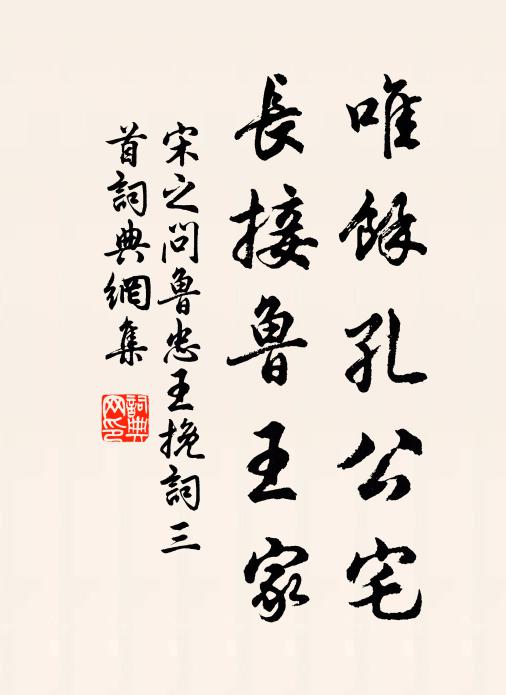 唯餘孔公宅
長接魯王家
宋之问魯忠王挽詞三
首詞典網集
詞典
网印